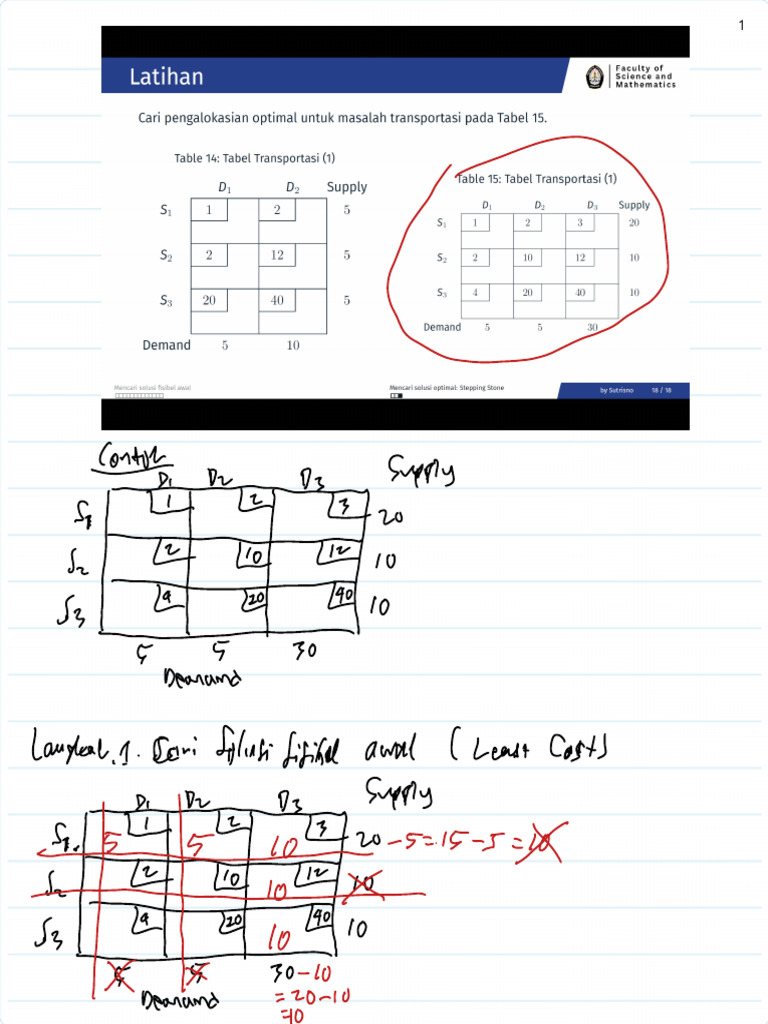 1
Latihan
Faculty of
Science and
Mathematics
Cari pengalokasian optimal untuk masalah transportasi pada Tabel 15.
Table 14: Tabel Transportasi (1)
D1 D2 Supply
S1 1 2 5
S2 2 12 5
S3 20 40 5
Demand 5 10
Table 15: Tabel Transportasi (1)
D1 D2 D3 Supply
S1 1 2 3 20
S2 2 10 12 10
S3 4 20 40 10
Demand 5 5 30
Mencari solusi fisibel awal
Mencari solusi optimal: Stepping Stone
by Sutrisno 18 / 18
Contoh
D1 D2 D3 Supply
S1 1 2 3 20
S2 2 10 12 10
S3 4 20 40 10
5 5 30
Demand
Langkah.1. Cari Solusi fisibel awal (Least Cost)
D1 D2 D3 Supply
S1 5 1 5 2 10 3 20 -5=15-5=10
S2 2 10 10 12 10
S3 4 20 10 40 10
5 5 30-10
Demand =20-10
=10